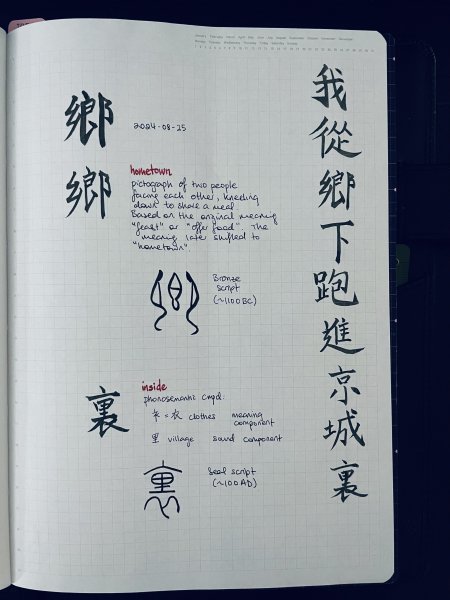 January February March April May June July August September October November December
Monday Tuesday Wednesday Thursday Friday Saturday Sunday
我從鄉下跑進京城裏
鄉
鄉
2024-08-25
hometown
pictograph of two people
facing each other, kneeling
down to share a meal
Based on the original meaning
"feast" or "offer food". The
meaning later shifted to
"hometown".
Bronze
script
(~1100BC)
裏
inside
phonosemantic cmpd:
= 衣 clothes meaning
component
里 village sound component
裏
Seal script
(~100AD)